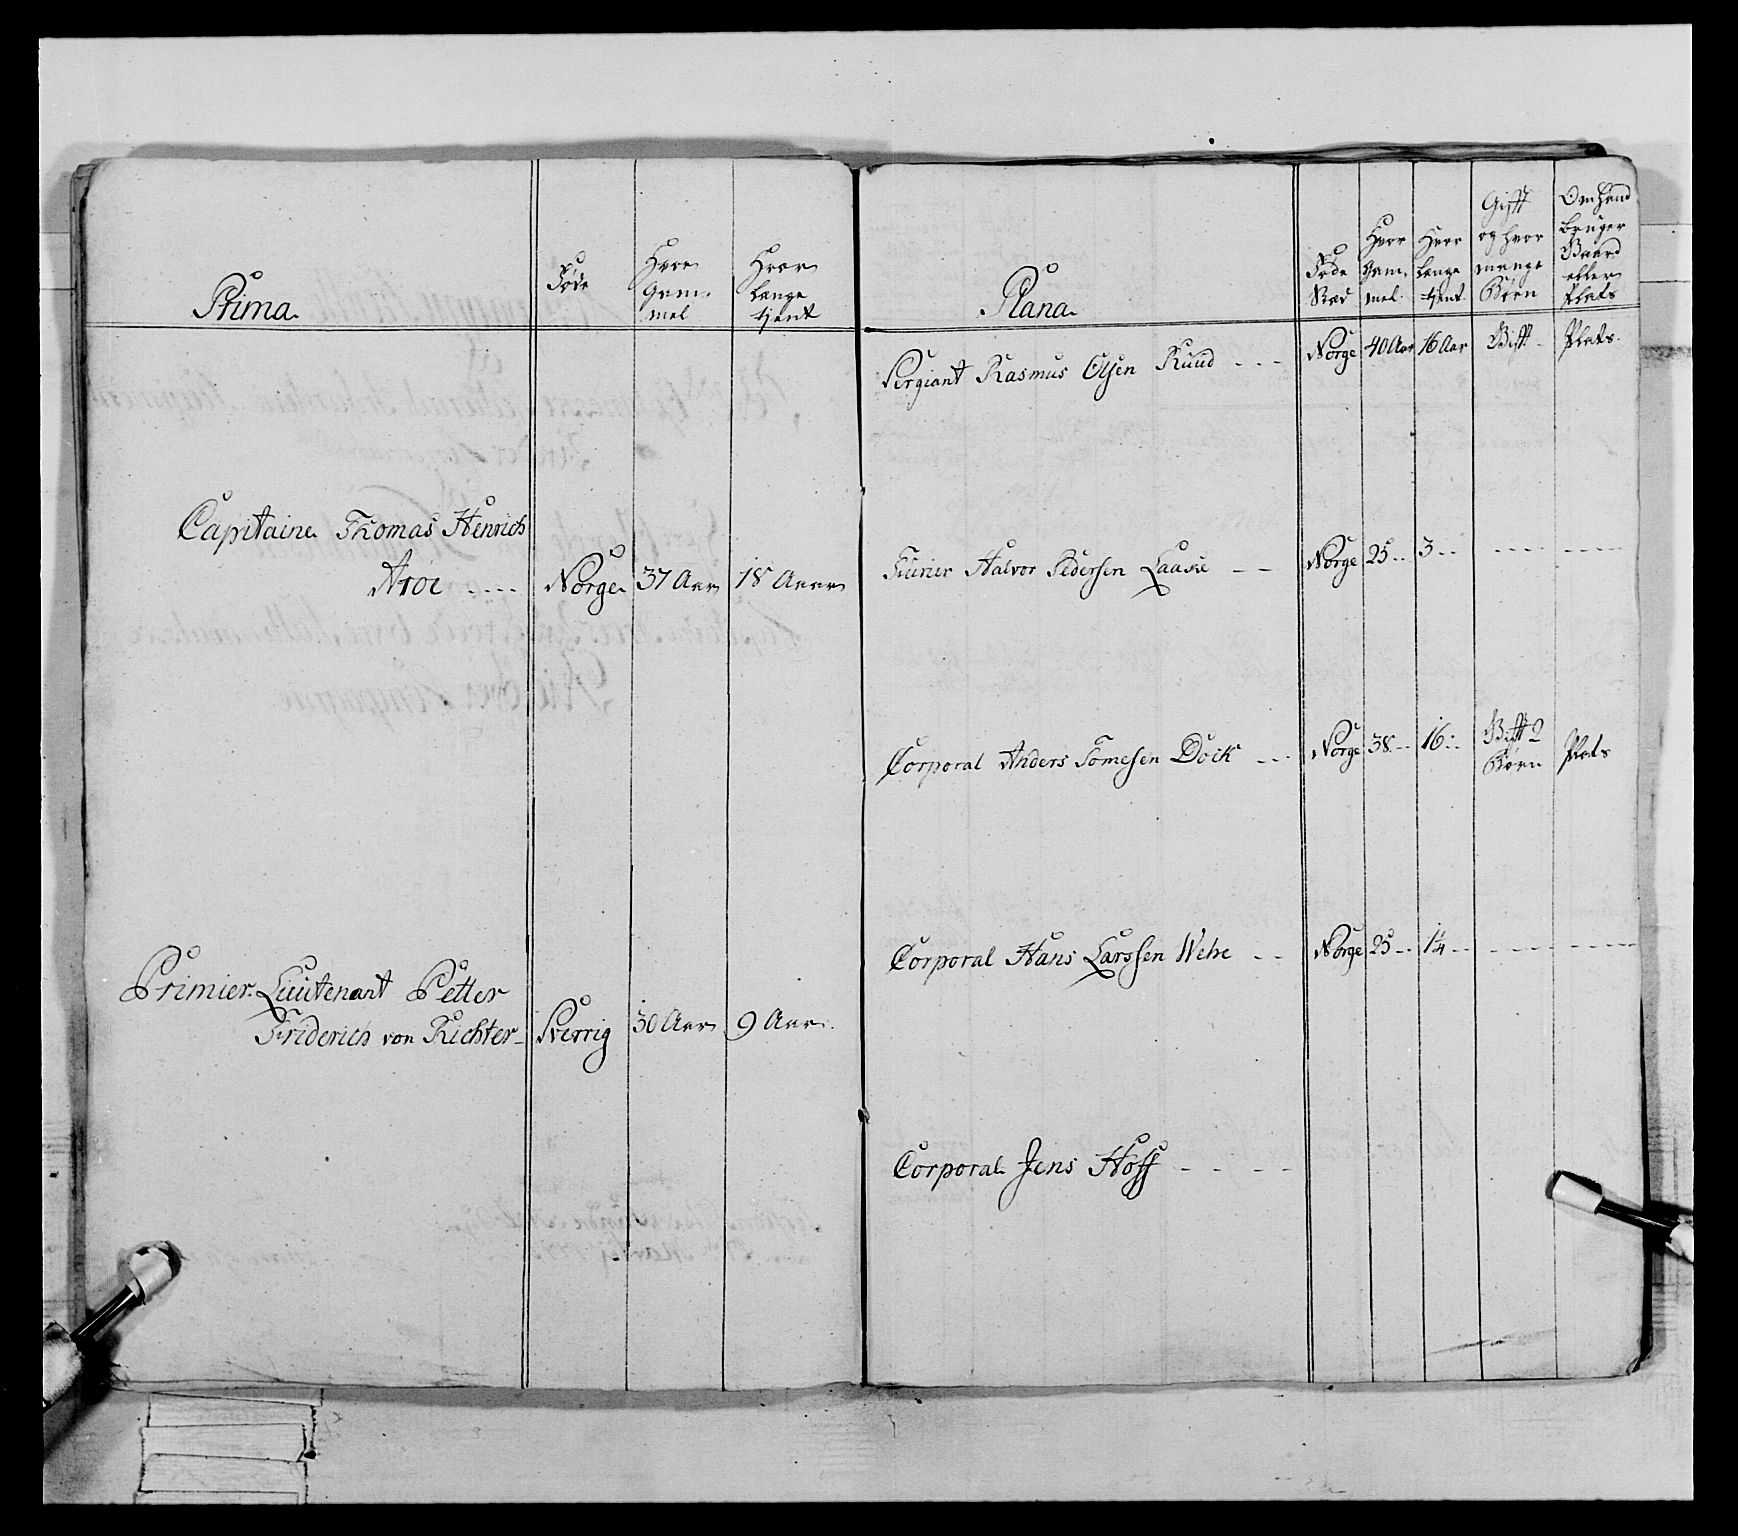 Prima
Føde
Hvor
Gam-
mel
Hvor
Længe
tjent
Capitaine Thomas Henrich
Arøe ---- Norge 37 Aar 18 Aar
Primier Lieutenant Petter
Friderich von Richter Sverrig 30 Aar 9 Aar
Plana
Føde
Stæd
Hvor
Gam-
mel
Hvor
Længe
tjent
Gift
og hvor
mange
Børn
Om hand
bruger
Gaard
eller
Plats
Sergiant Rasmus Olsen Ruud --- Norge 40 Aar 16 Aar Gift - Plats
Furier Halvor Pedersen Laake -- Norge 25 -- 3 -- ---- ----
Corporal Anders Tomesen Dock --- Norge 38 -- 16 -- Gift 2
Børn Plats
Corporal Hans Larssen -- Norge 25 -- 14 -- ---- ----
Corporal Jens Hoff - - - -